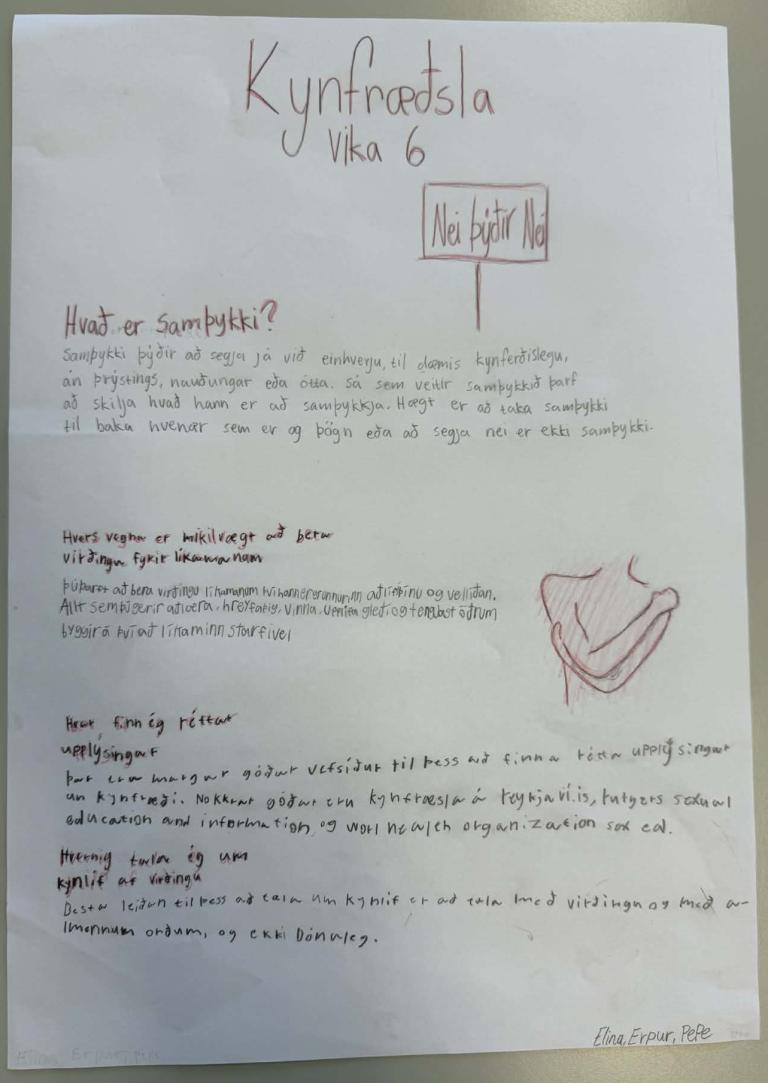 Kynfræðsla
Vika 6
Nei þýðir Nei
Hvað er samþykki?
Samþykki þýðir að segja já við einhverju, til dæmis kynferðislegu,
án þrýstings, nauðungar eða ótta. Sá sem veitir samþykkið þarf
að skilja hvað hann er að samþykkja. Hægt er að taka samþykki
til baka hvenær sem er og þögn eða að segja nei er ekki samþykki.
Hvers vegna er mikilvægt að bera
virðingu fyrir líkamanum
þú þarft að bera virðingu líkamanum því hann er grunnurinn að lífi þínu og vellíðan.
Allt sem þú gerir að læra, hreyfa þig, vinna, upplifa gleði og tengjast öðrum
byggir á því að líkaminn starfi vel
Hvar finn ég réttar
upplýsingar
þar eru margar góðar vefsíður til þess að finna rétta upplýsingar
um kynfræði. Nokkrar góðar eru kynfræsla á reykjavi.is, rutgers sexual
education and information, og worl health organization sex ed.
Hvernig tala ég um
kynlíf af virðingu
Besta leiðin til þess að tala um kynlíf er að tala með virðingu og með a-
lmennum orðum, og ekki Dónaleg.
Elina, Erpur, PePe
Elina, Erpur, PePe